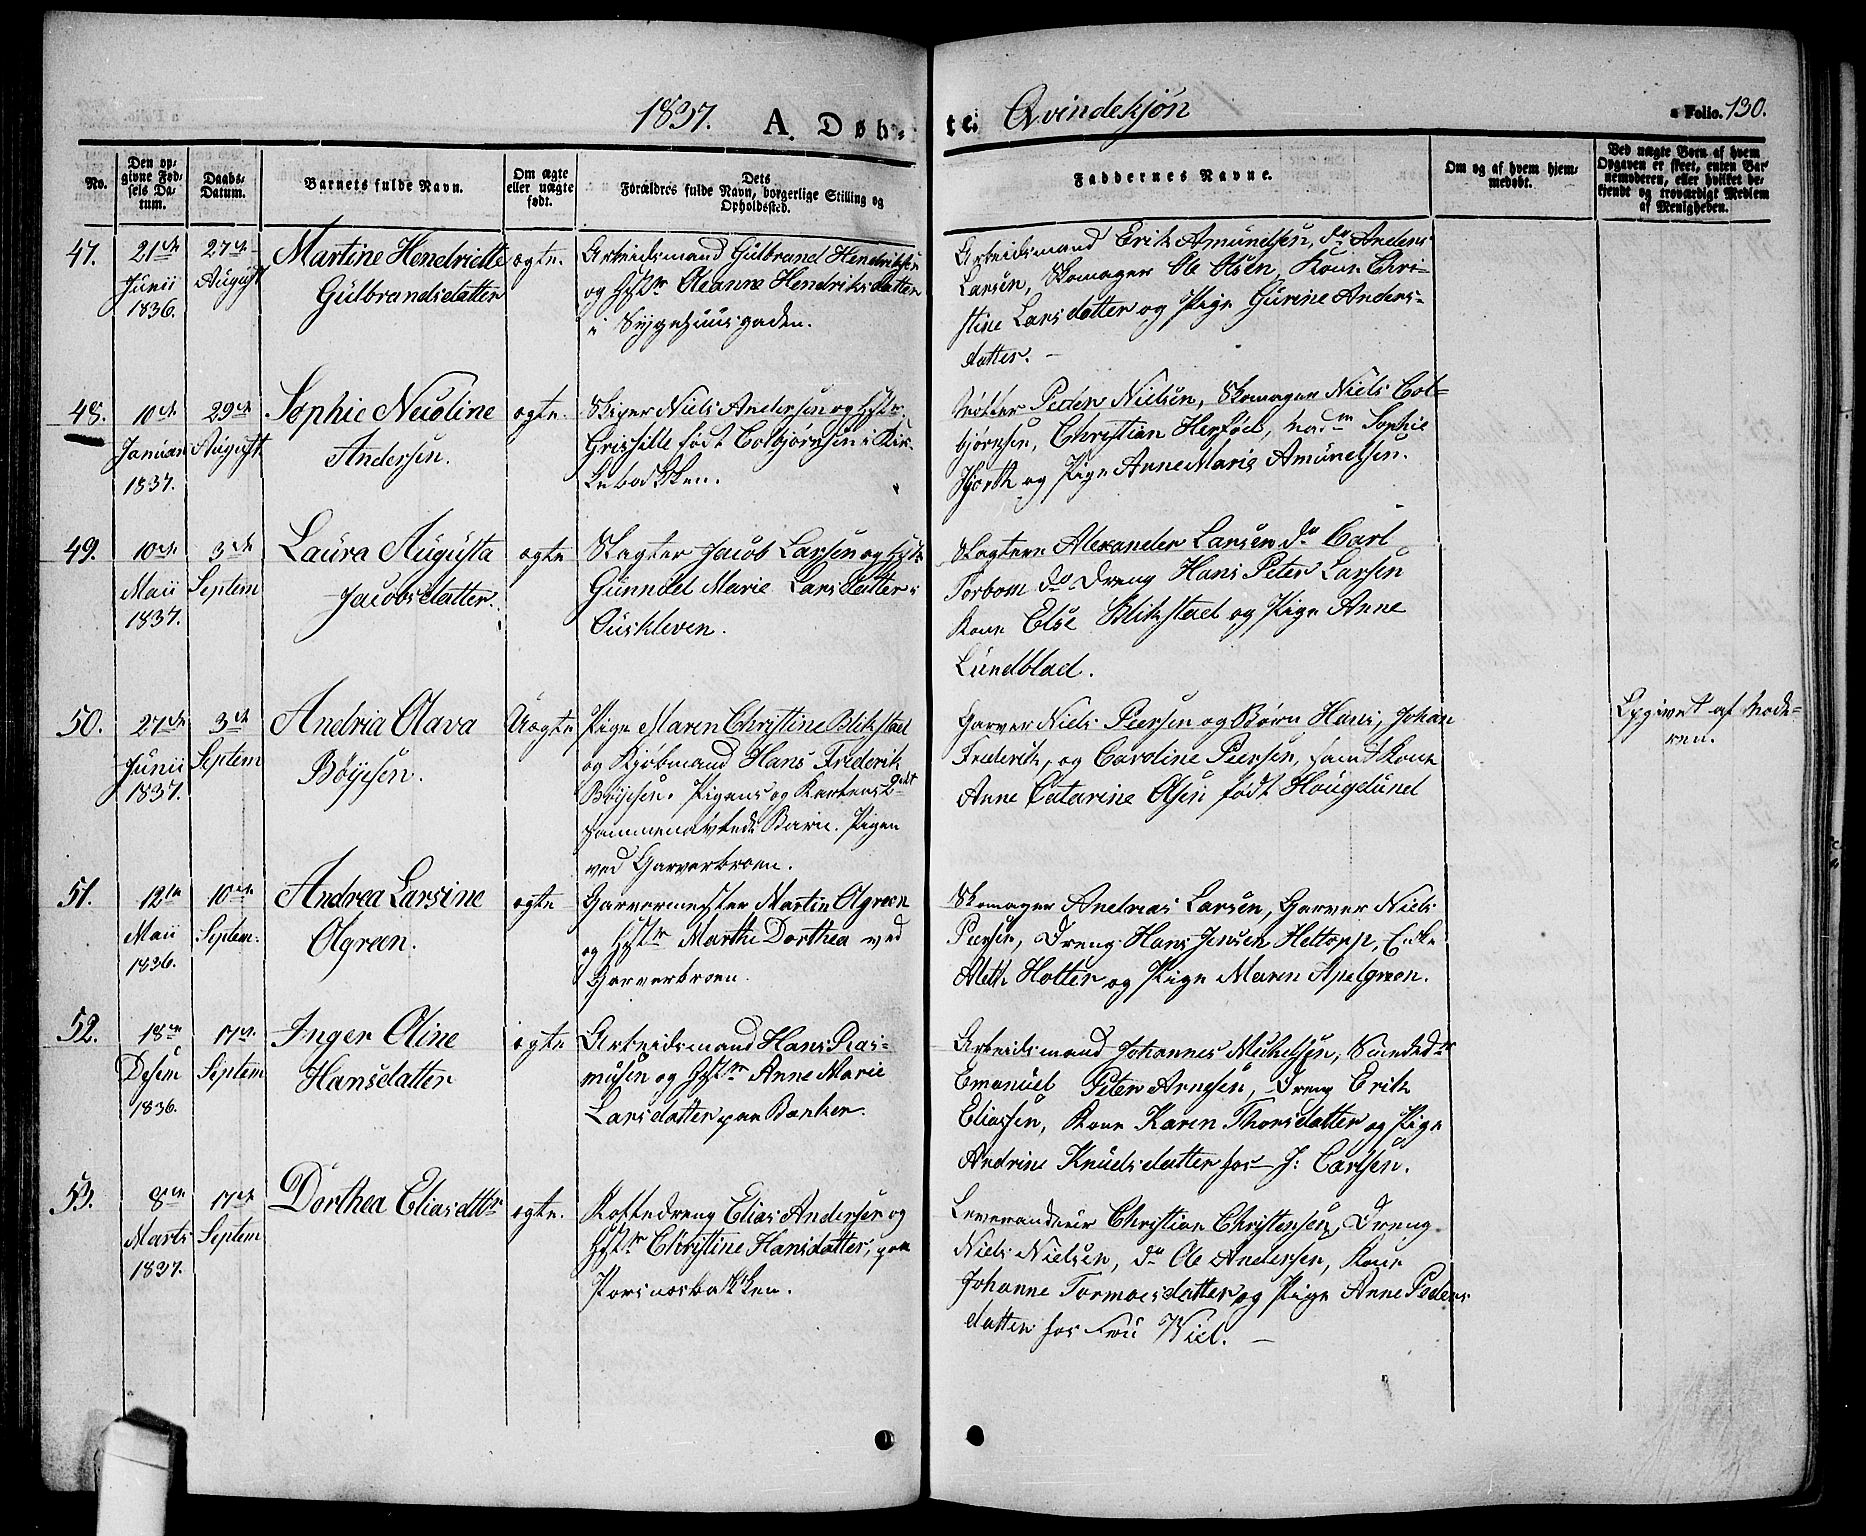 1837. A. Døb- te. Qvindekjøn a Folio. 130.
No.
Den op-
givne Fød-
sels Da-
tum.
Daabs-
Datum.
Barnets fulde Navn.
Om ægte
eller uægte
født.
Dets
Forældres fulde Navn, borgerlige Stilling og
Opholdssted.
Faddernes Navne.
Om og af hvem hjem-
medøbt.
Ved uægte Børn af hvem
Opgaven er skeet, enten Bar-
nemoderen, eller hvilket be-
kjendt og troværdigt Medlem
af Menigheden.
47.
21de
Junii
1836.
27de
August
Martine Hendriette
Gülbrandsdatter
ægte.
Arbeidsmand Gülbrand Hendriksen
og Hstr Oleanna Hendriksdatter
i Sygehuusgaden.
Arbeidsmand Erik Amundsen, do Anders
Larsen, Skomager Ole Olsen, Kone Chri-
stine Larsdatter og Pige Gurine Anders-
datter. -
48.
10de
Januar
1837.
29de
August
Sophie Nicoline
Andersen.
ægte.
Skiper Niels Andersen og Hstr.
Grisille født Colbjørnsen i Kir-
kebakken.
Peder Nielsen, Skomager Niels Col-
bjørnsen, Christian Herføel, Mad.m Sophie
Hjorth og Pige Anne Marie Amundsen.
49.
10de
Maii
1837.
3de
Septem
Laura Augusta
Jacobsdatter.
ægte
Slagter Jacob Larsen og Hstr
Gunnild Marie Larsdatter i
Ouskleven.
Slagtere Alexander Larsen do Carl
Torbom do Dreng Hans Peter Larsen
Kone Else Blikstad og Pige Anne
Lundblad.
50.
27de
Junii
1837.
3de
Septem
Andria Olava
Böÿesen.
Uægte
Pige Maren Christine Blikstad
og Kjøbmand Hans Frederik
Böÿesen. Pigens og Karlens 2det
sammenavlede Barn. Pigen
ved Garverbroen.
Garver Niels Peersen og Børn Hans, Johan
Frederik, og Caroline Peersen, samt Kone
Anne Catarine Olsen født Hougelund
Opgivet af Mode-
ren.
51.
12te
Maii
1836.
10de
Septem.
Andrea Larsine
Olgreen.
ægte
Garvermester Martin Olgreen
og Hstr Marthe Dorthea ved
Garverbroen.
Skomager Andreas Larsen, Garver Niels
Peersen, Dreng Hans Jensen Heltopp, Enke
Aleth Holter og Pige Maren Apelgreen.
52.
18de
Desem
1836.
17de
Septem
Inger Oline
Hansdatter
ægte
Arbeidsmand Hans Ras-
musen og Hstr Anne Marie
Larsdatter paa Banken.
Arbeidsmand Johannes Michelsen,
Emanuel Peter Arnesen, Dreng Erik
Eliassen, Kone Karen Thorsdatter og Pige
Andrine Knudsdatter hos J: Carlsen.
53.
8de
Marts
1837.
17de
Septem
Dorthea Eliasdttr
ægte.
Kottedreng Elias Andersen og
Hstr Christine Hansdatter, paa
Porsnesbakken.
Leverandeur Christian Christensen, Dreng
Niels Nielsen, do Ole Andersen, Kone
Johanne Tormoesdatter og Pige Anne Peders
datter hos Frü Wiel. -